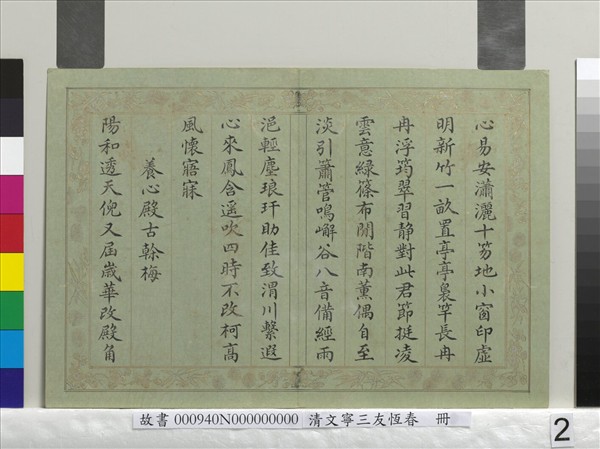 心易安瀟灑十笏地小窗印虛
明新竹一畝置亭亭裊竿長冉
冉浮筠翠習静對此君節挺凌
雲意綠篠布閒階南薰偶自至
淡引簫管鳴嶰谷八音備經雨
浥輕塵琅玕助佳致渭川繫遐
心來鳳含遥吹四時不改柯高
風懷寤寐
養心殿古榦梅
陽和透天倪又屆歲華改殿角
故書 000940N000000000 清文寧三友恆春 冊
2